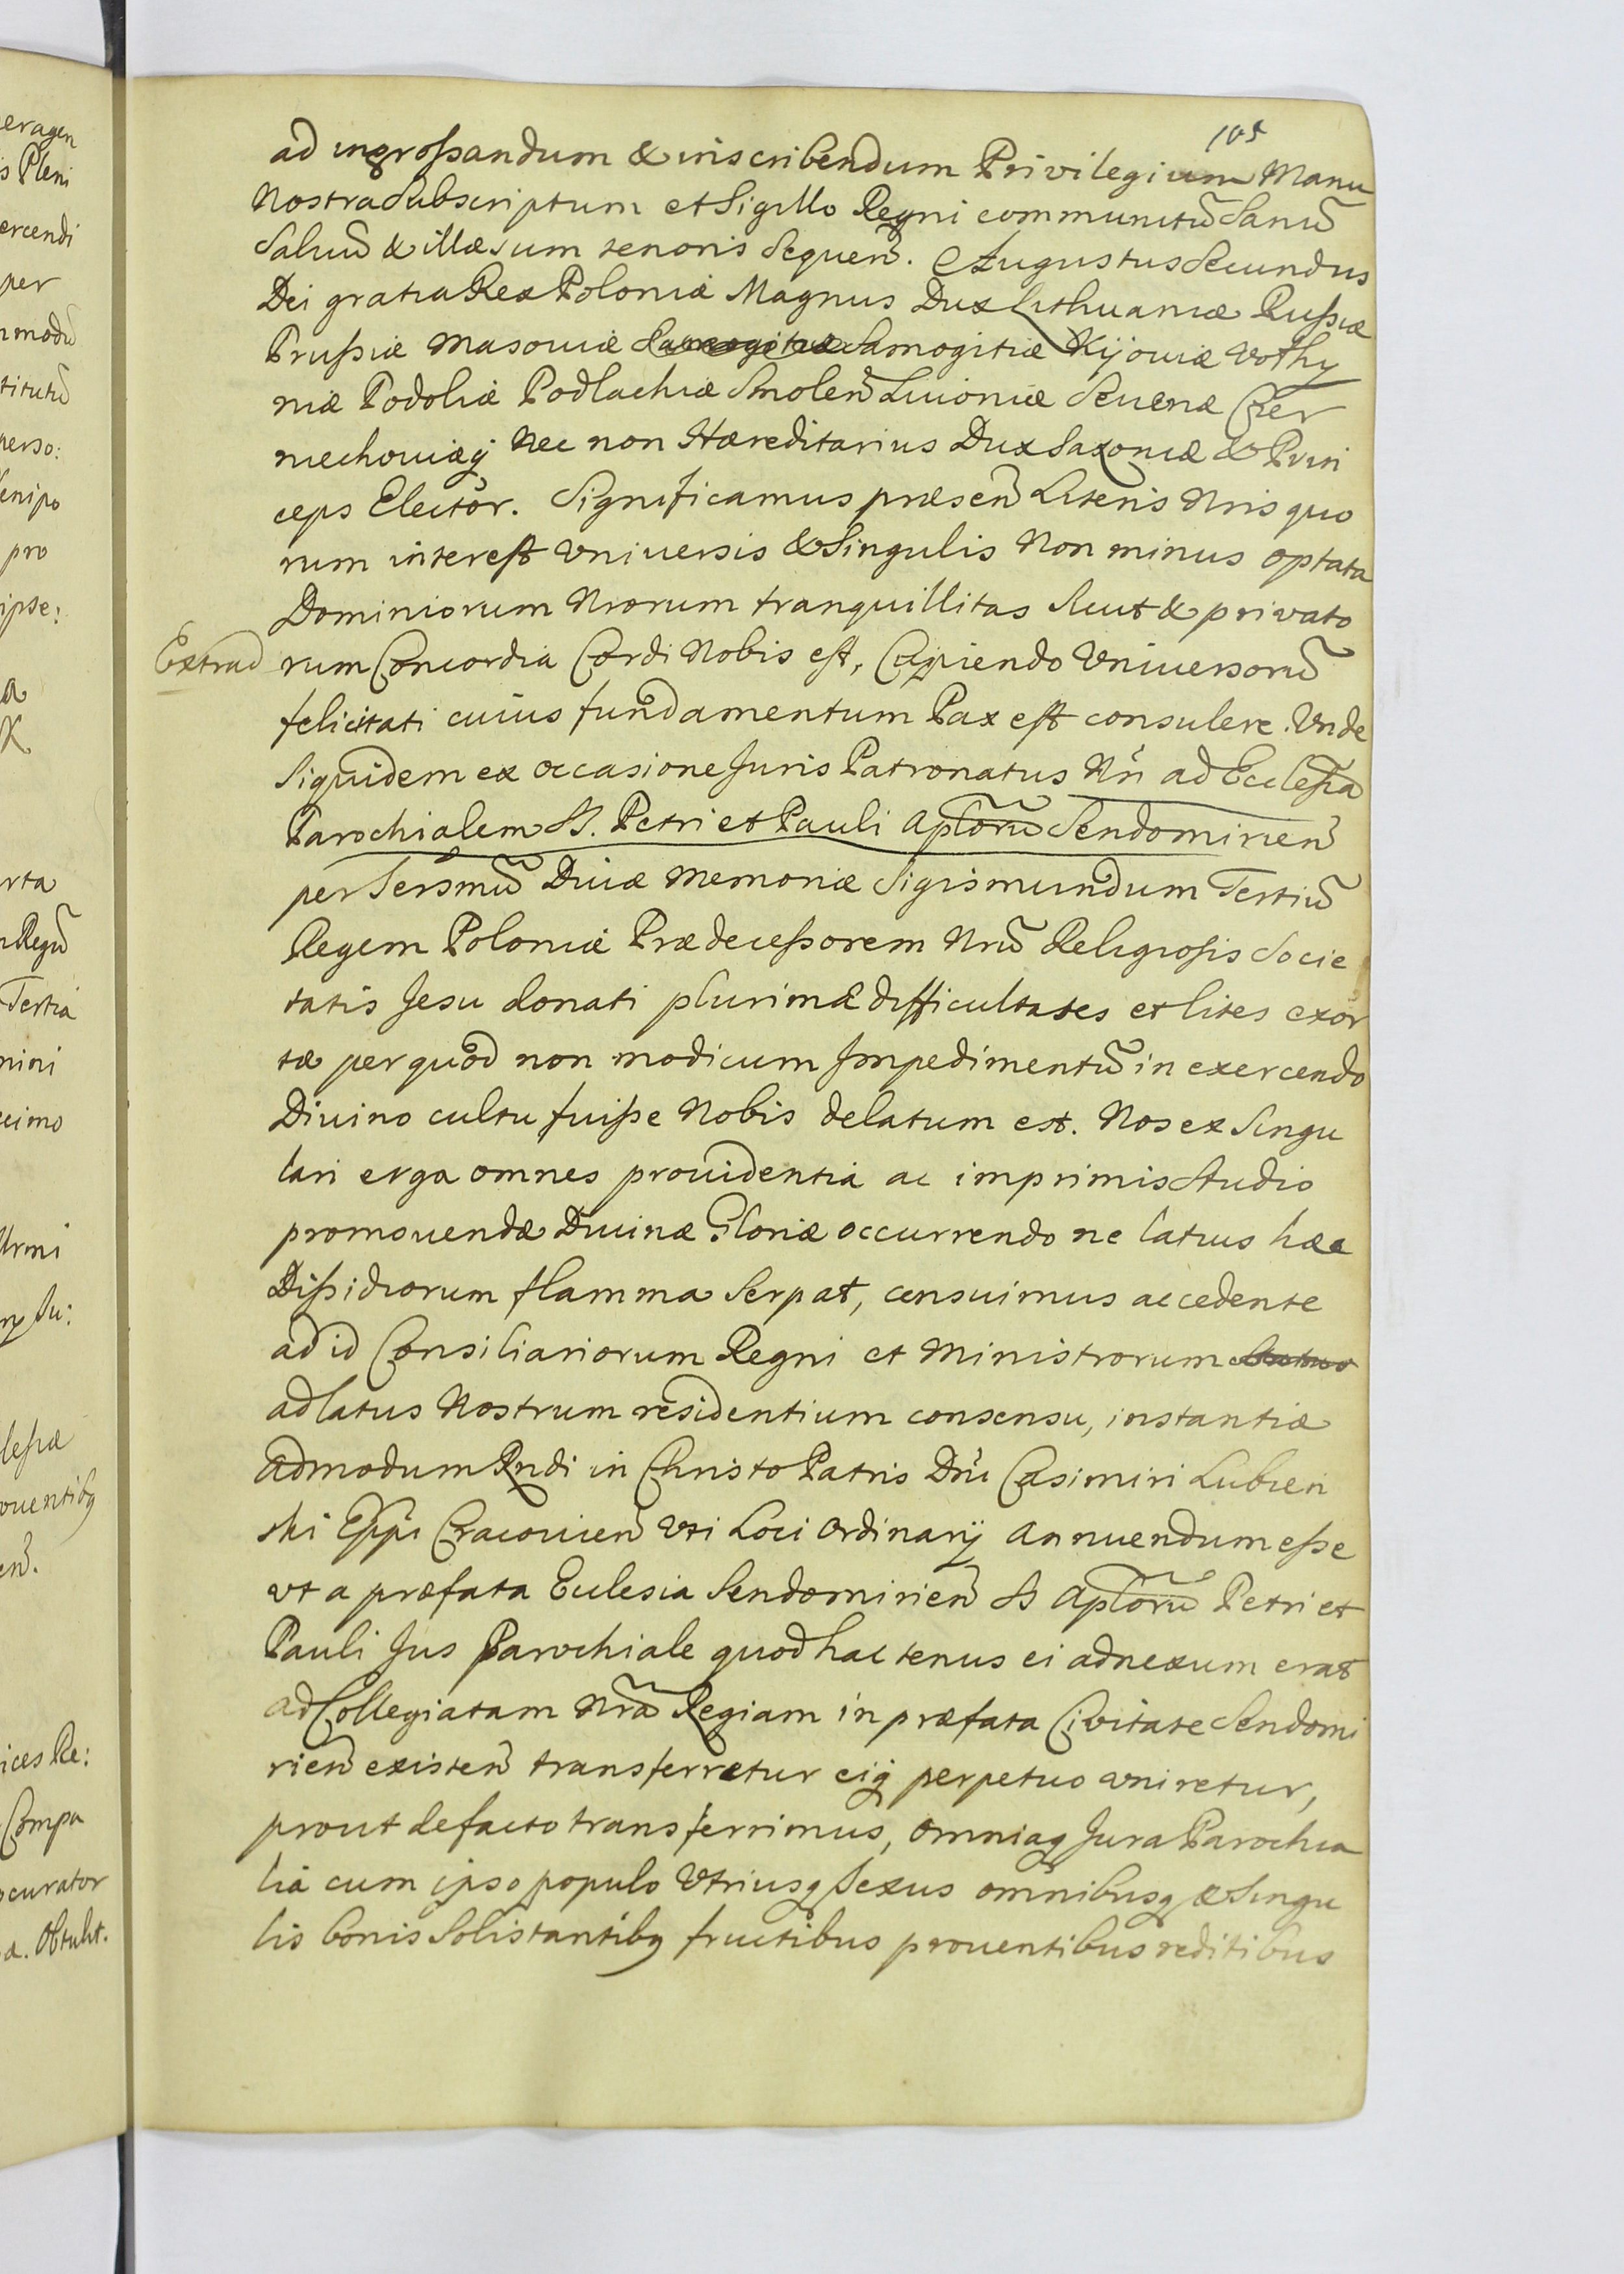 105
ad ingrossandum & inscribendum Privilegium Manu
Nostra Subscriptum et Sigillo Regni communitũ Sanũ
Saluũ & illæsum tenoris Sequeñ. Augustus Secundus
Dei gratia Rex Poloniæ Magnus Dux Lithuaniæ Russiæ
Prussiæ Masouiæ Samogitiæ Samogitiæ Kijouiæ Volhy
niæ Podoliæ Podlachiæ Smoleñ Liuoniæ Seueriæ Czer
niechouiæq Nec non Hæreditarius Dux Saxoniæ & Prin
ceps Elector. Significamus præseñ Literis Nris quo
rum interest Vniuersis & Singulis Non minus optata
Dominiorum Nrorum tranquillitas Sicut & privato
Extrad rum Concordia Cordi Nobis est, Cupiendo Vniuersorũ
felicitati cuius fundamentum Pax est consulere. Vnde
Siquidem ex occasione Juris Patronatus Nri ad Ecclesiã
Parochialem SS. Petri et Pauli Aplorũ Sendomirieñ
per Sersmũ Diuæ Memoriæ Sigismundum Tertiũ
Regem Poloniæ Prædecessorem Nrũ Religiosis Socie
tatis Jesu donati plurimæ difficultates et lites exor
tæ per quod non modicum Impedimentũ in exercendo
Diuino cultu fuisse Nobis delatum est. Nos ex Singu
lari erga omnes prouidentia ac imprimis Studio
promouendæ Diuinæ Gloriæ occurrendo ne latius hæc
Dissidiorum flamma Serpat, censuimus accedente
ad id Consiliariorum Regni et Ministrorum
ad latus Nostrum residentium consensu, instantiæ
admodum Rndi in Christo Patris Dni Casimiri Lubien
ski Eppi Cracouieñ Vti Loci Ordinarij annuendum esse
vt a præfata Ecclesia Sendomirieñ SS Aplorũ Petri et
Pauli Jus Parochiale quod hactenus ei adnexum erat
ad Collegiatam Nrã Regiam in præfata Civitate Sendomi
rieñ existeñ transferretur eiq perpetuo vniretur,
prout de facto transferrimus, omniaq Jura Parochia
lia cum ipso populo Vtriusq Sexus omnibusq & Singu
lis bonis Solistantibq fructibus prouentibus reditibus